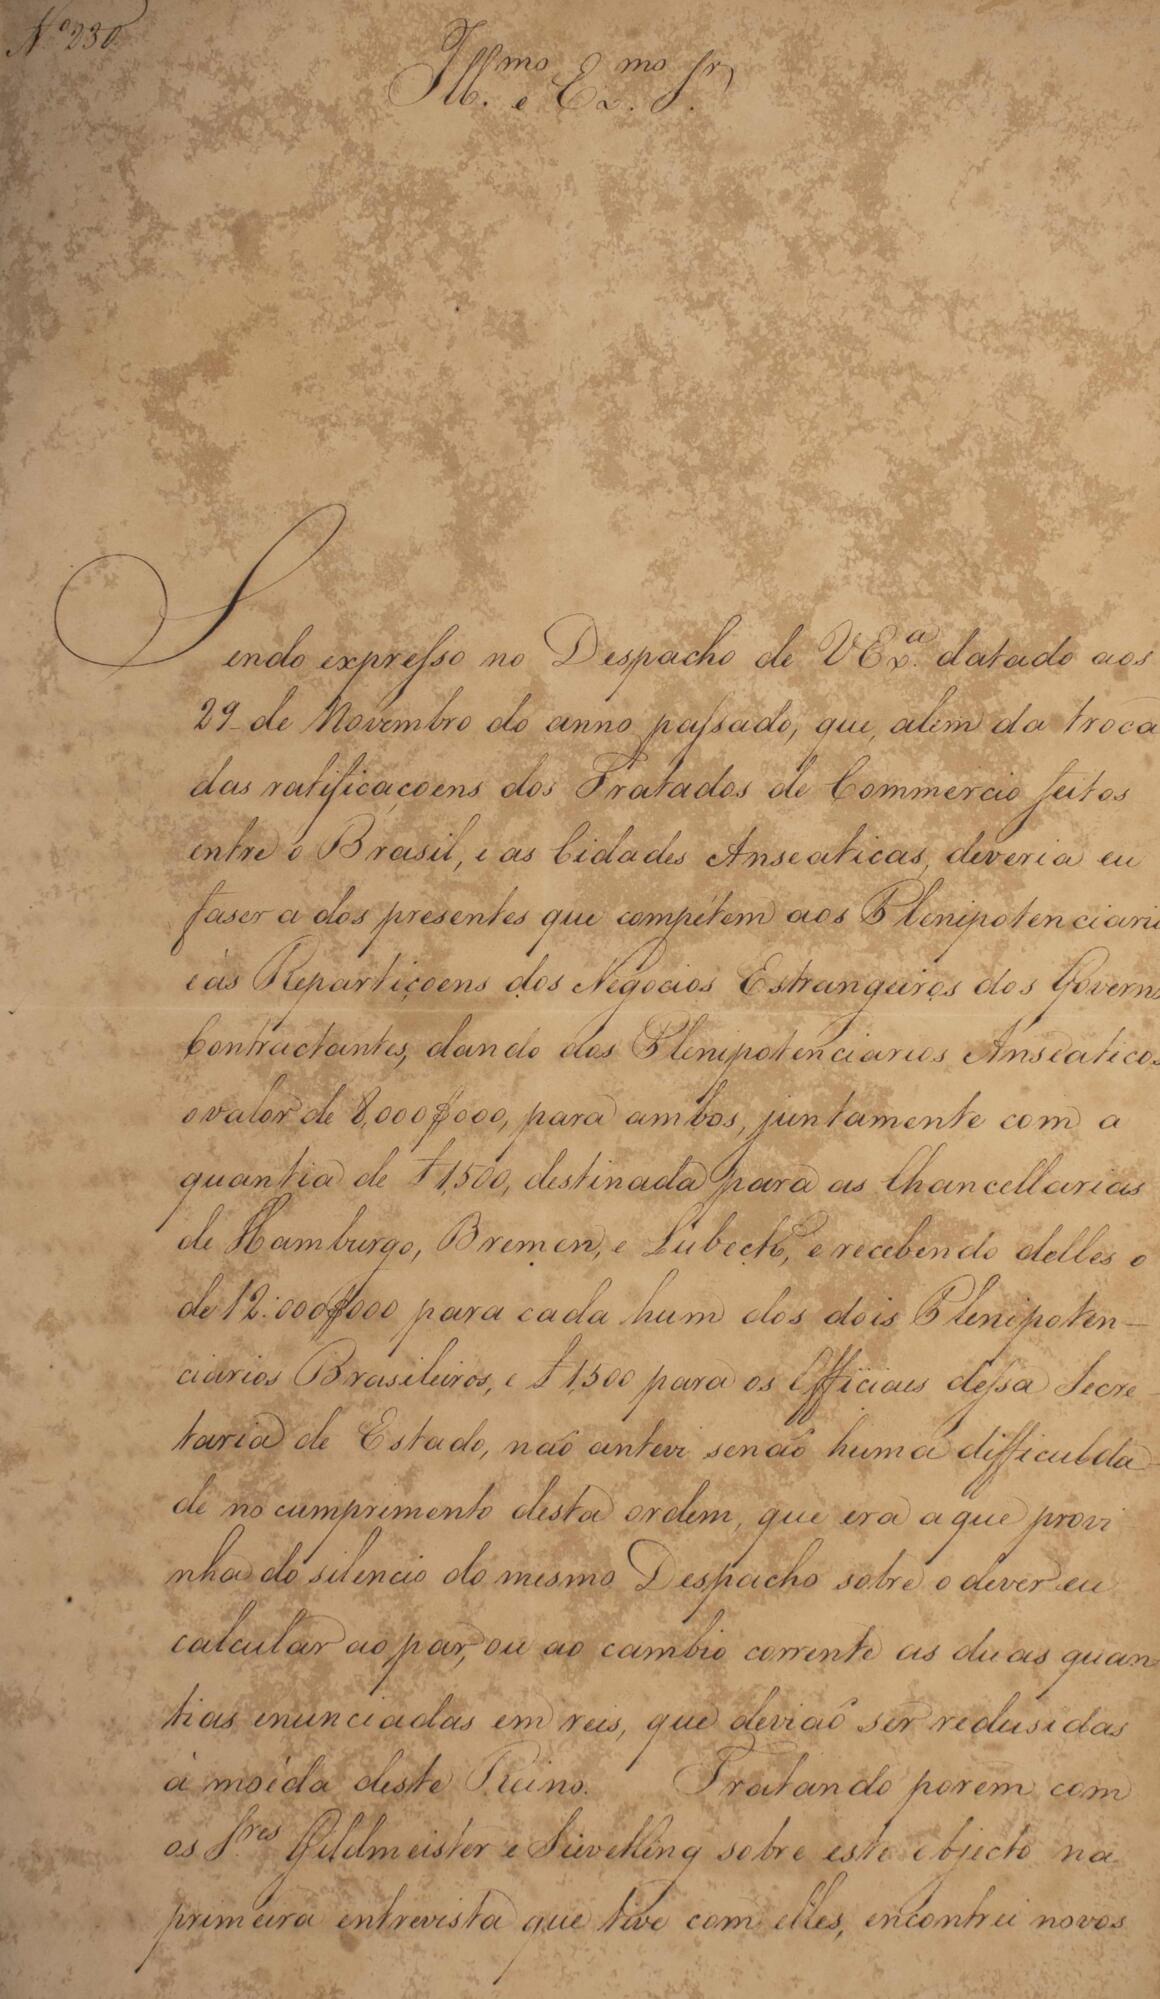 Nº 230
Illmo e Exmo Sr
Sendo expresso no Despacho de VExa. datado aos
29 de Novembro do anno passado, que, alem da troca
das ratificaçoens dos Tratados de Commercio feitos
entre o Brasil, e as Cidades Anseaticas, deveria eu
faser a dos presentes que compétem aos Plenipotenciario
e ás Repartiçoens dos Negocios Estrangeiros dos Governs
Contractantes, dando aos Plenipotenciarios Anseaticos
o valor de 8,000$000, para ambos, juntamente com a
quantia de £1,500, destinada para as Chancellarias
de Hamburgo, Bremen, e Lubeck, e recebendo delles o
de 12:000$000 para cada hum dos dois Plenipoten-
ciarios Brasileiros, e £1,500 para os Officiaes dessa Secre-
taria de Estado, naõ antevi senaõ huma difficulda-
de no cumprimento desta ordem, que era a que provi
nha do silencio do mesmo Despacho sobre o dever eu
calcular ao par, ou ao cambio corrente as duas quan
tias enunciadas em reis, que deviaõ ser redusidas
á moéda deste Reino. Tratando porem com
os Sres Gildmeister e Sieveking sobre este objecto na
primeira entrevista que tive com elles, encontrei novos